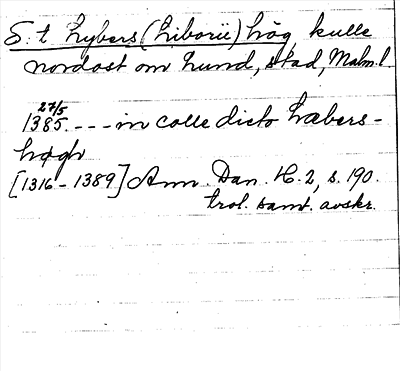 S:t Lybers (Liborii) hög, kulle
nordost om Lund, stad, Malm.l.
27/5
1385. --- in colle dicto Læbers-
høgh
[1316-1389] Ann. Dan. H. 2, s. 190.
trol. samt. avskr.